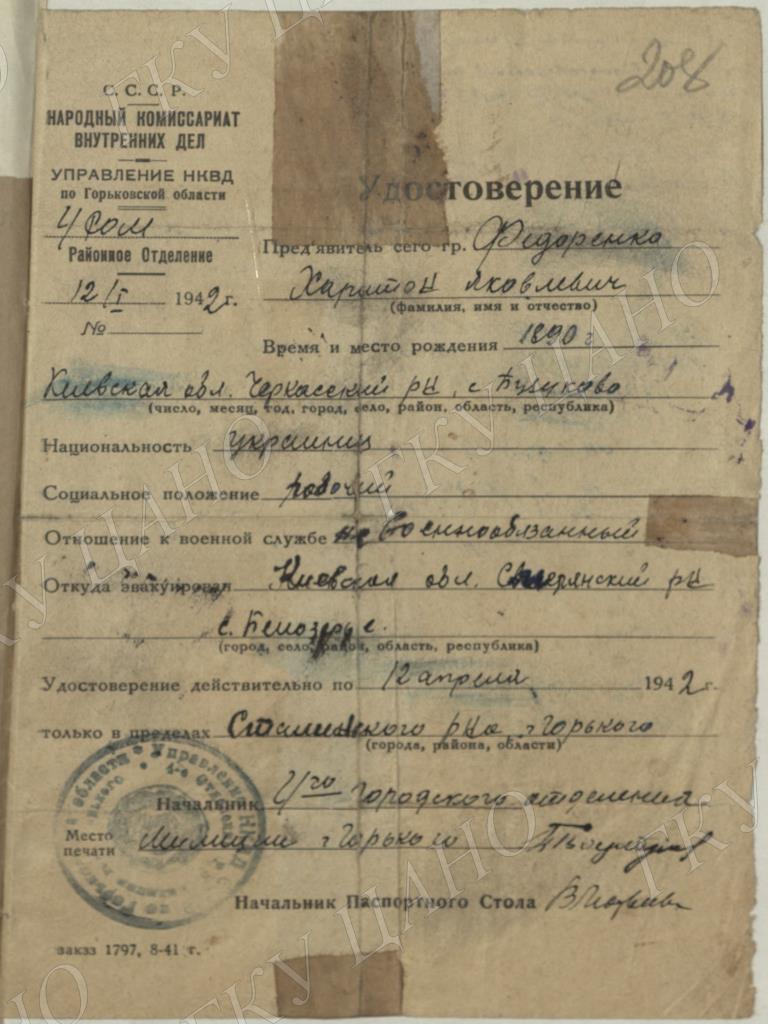 208
С. С. С. Р.
НАРОДНЫЙ КОМИССАРИАТ
ВНУТРЕННИХ ДЕЛ
УПРАВЛЕНИЕ НКВД
по Горьковской области
4 гом
Районное Отделение
12/I 1942 г.
№
Удостоверение
Пред'явитель сего гр. Федоренко
Харитон Яковлевич
(фамилия, имя и отчество)
Время и место рождения 1890 г
Киевская обл. Черкасский рн, с Буцуково
(число, месяц, год, город, село, район, область, республика)
Национальность украинец
Социальное положение рабочий
Отношение к военной службе не военнообязанный
Откуда эвакуирован Киевская обл. рн
с. Белозерье
(город, село, район, область, республика)
Удостоверение действительно по 12 апреля 1942 г.
только в пределах Сталинского рна г Горького
(города, района, области)
Начальник 4го городского отделения
Место
печати
Милиции г Горького
Начальник Паспортного Стола
заказ 1797, 8-41 г.
ГКУ ЦАНО